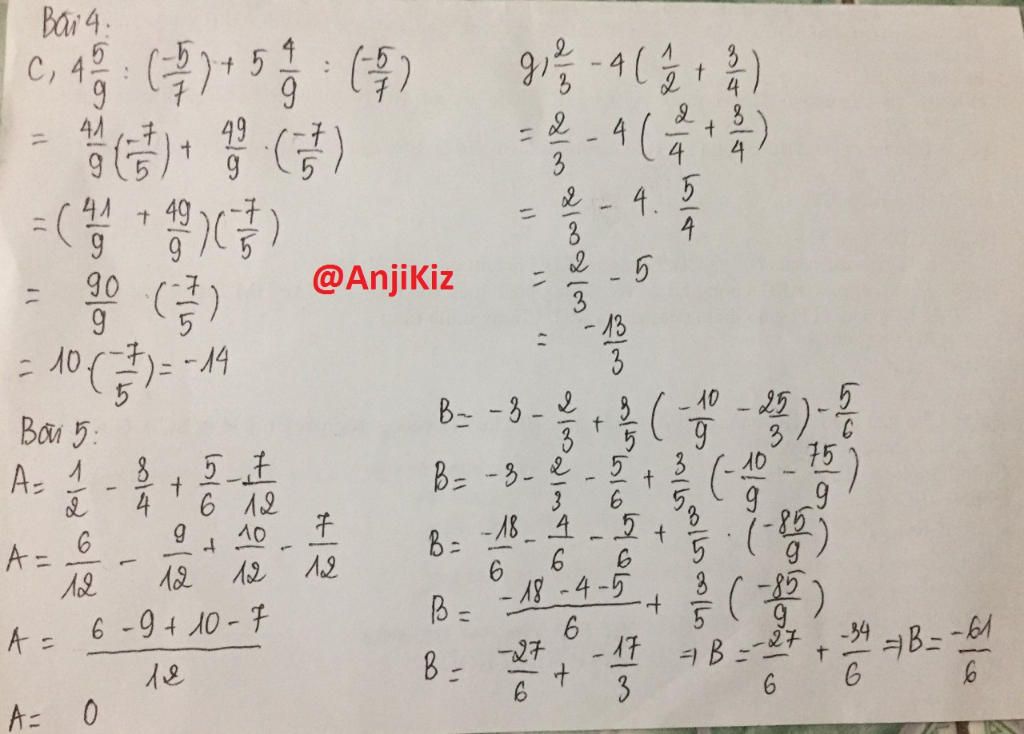 Bài 4:
c, 4 5/9 : (-5/7) + 5 4/9 : (-5/7)
= 41/9 (-7/5) + 49/9 . (-7/5)
= (41/9 + 49/9)(-7/5)
= 90/9 . (-7/5)
= 10.(-7/5) = -14
g, 2/3 - 4(1/2 + 3/4)
= 2/3 - 4(2/4 + 3/4)
= 2/3 - 4. 5/4
= 2/3 - 5
= -13/3
@AnjiKiz
Bài 5:
A= 1/2 - 3/4 + 5/6 - 7/12
A= 6/12 - 9/12 + 10/12 - 7/12
A= (6 - 9 + 10 - 7)/12
A= 0
B= -3 - 2/3 + 3/5 (-10/9 - 25/3) - 5/6
B= -3 - 2/3 - 5/6 + 3/5 (-10/9 - 75/9)
B= -18/6 - 4/6 - 5/6 + 3/5 . (-85/9)
B= (-18 - 4 - 5)/6 + 3/5 (-85/9)
B= -27/6 + -17/3 ⇒ B = -27/6 + -34/6 ⇒ B= -61/6